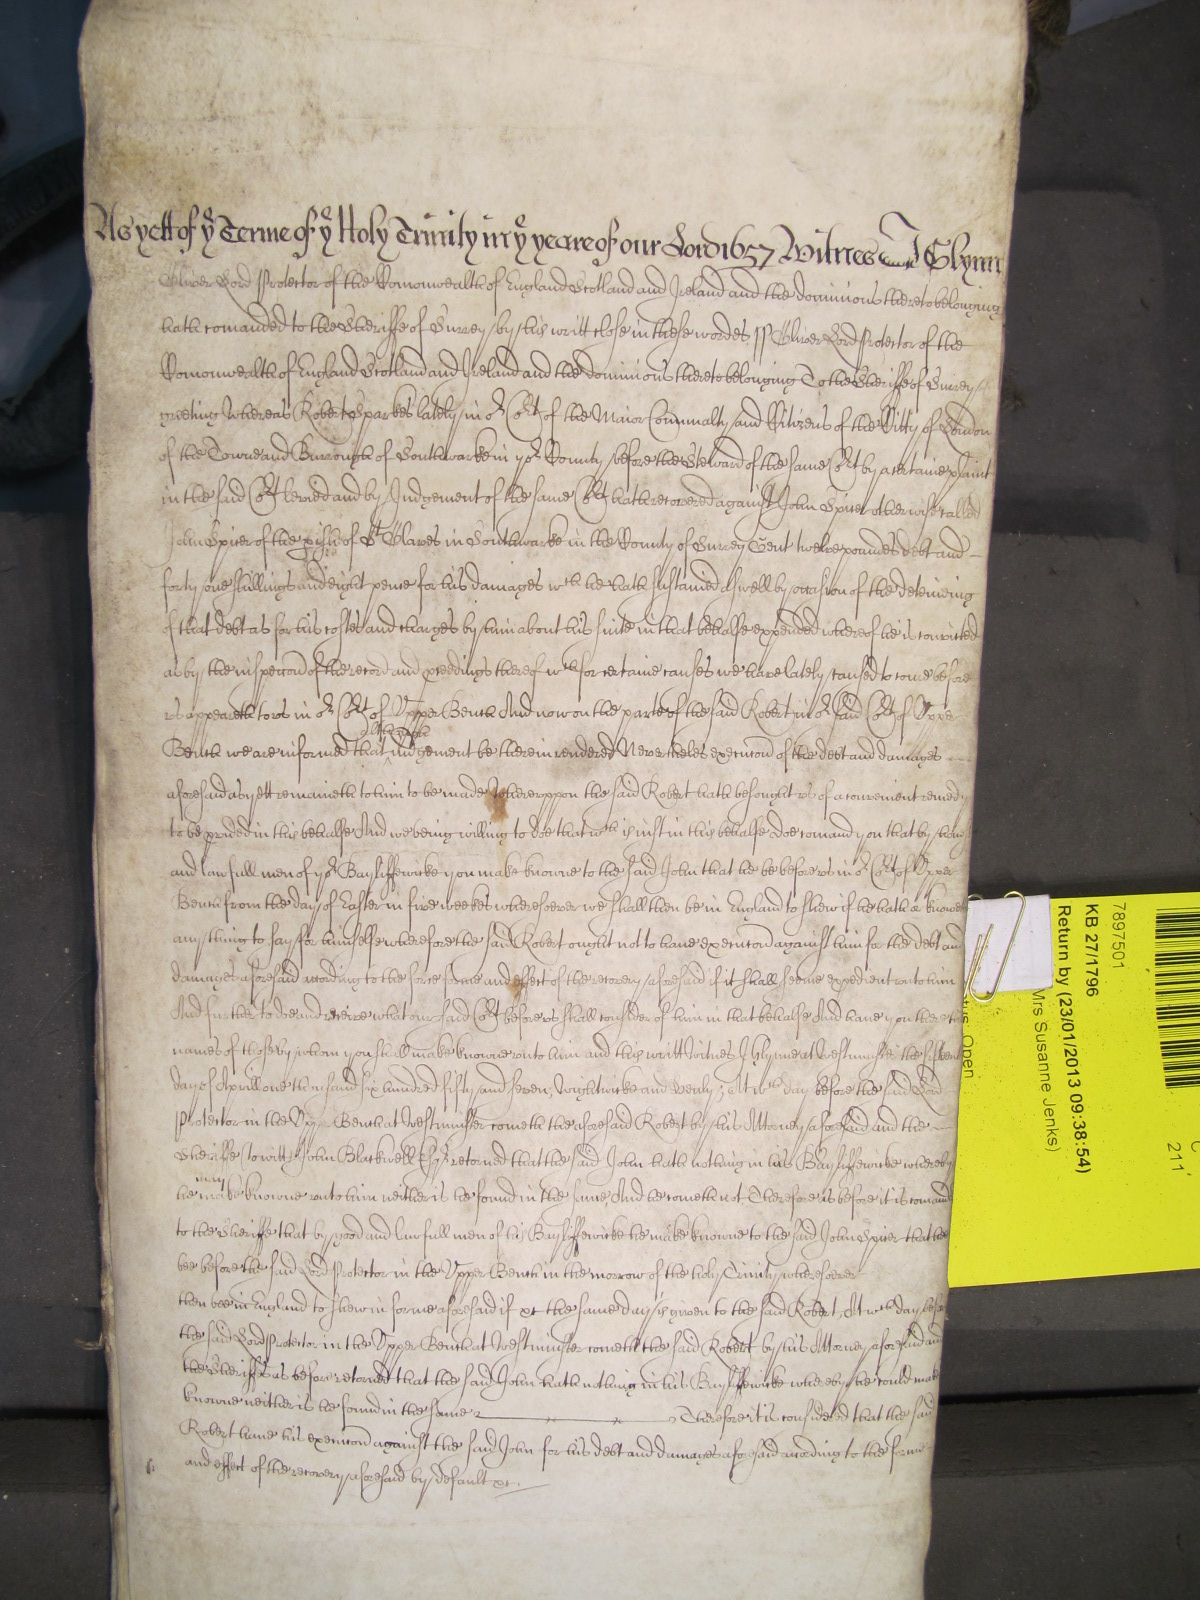 As yett of yͤ Terme of yͤ Holy Trinity in yͤ yeare of our Lord 1657 Witnes J Glynn
Oliver Lord Protector of the Comonwealth of England Scotland and Ireland and the dominions thereto belonging
hath comanded to the Sheriffe of Surrey by this writt close in these wordes ss Oliver Lord Protector of the
Comonwealth of England Scotland and Ireland and the dominions thereto belonging To the Sheriffe of Surrey
greeting Whereas Robert Sparkes lately in oʳ Coʳt of the Maior Cominalty and Citizens of the Citty of London
of the Towne and Burrough of Southwarke in yoʳ County before the Steward of the same Coʳt by a certaine plaint
in the said Coʳt levied and by Judgement of the same Coʳt hath recovered against John Spicer otherwise called
John Spicer of the pish of Sᵗ Olaves in Southwarke in the County of Surrey Gent twelve poundes debt and
forty one shillings and eight pence for his damages wᶜʰ he hath sustained aswell by occasion of the deteining
of that debt as for his costes and charges by him about his suite in that behalfe expended whereof he is convicted
as by the inspeccon of the record and pceedings thereof wᶜʰ for certaine causes we have lately caused to come before
vs appeareth to vs in oʳ Coʳt of Vpper Bench And now on the parte of the said Robert in oʳ said Coʳt of Vpper
Bench we are informed that although Judgement be therein rendered Nevertheles execucon of the debt and damages
aforesaid as yett remaineth to him to be made Wherevppon the said Robert hath besought vs of a convenient remedy
to be pvided in this behalfe And we being willing to doe that wᶜʰ is iust in this behalfe doe comand you that by honest
and lawfull men of yoʳ Bayliffewicke you make knowne to the said John that he be before vs in oʳ Coʳt of Vpper
Bench from the day of Easter in five weekes wheresoever we shall then be in England to shew if he hath or knoweth
any thing to say for himselfe wherefore the said Robert ought not to have execucon against him for the debt and
damages aforesaid according to the force forme and effect of the recovery aforesaid if it shall seeme expedient vnto him
And further to doe and receive what our said Coʳt before vs shall consider of him in that behalfe And have you there the
names of those by whom you shall make knowne vnto him and this writt Witnes J Glynne at Westminster the
day of Aprill one thousand six hundred fifty and seven, Wightwicke and At wᶜʰ day before the said Lord
Protector in the Vpper Bench at Westminster cometh the aforesaid Robert by his Attorney aforesaid and the
Sheriffe to witt John Blackwell Esqʳ returned that the said John hath nothing in his Bayliffewicke whereby
he may make knowne vnto him neither is he found in the same, And he cometh not Therefore as before it is comanded
to the Sheriffe that by good and lawfull men of his Bayliffewicke he make knowne to the said John Spicer that he
bee before the said Lord Protector in the Vpper Bench in the morrow of the holy Trinity wheresoever
then bee in England to shew in forme aforesaid if &c the same day is given to the said Robert, At wᶜʰ day before
the said Lord Protector in the Vpper Bench at Westminster cometh the said Robert by his Attorney aforesaid and
the Sheriffe as before returned that the said John hath nothing in his Bayliffewicke whereby he could make
knowne neither is he found in the same Therefore it is considered that the said
Robert have his execucon against the said John for his debt and damages aforesaid according to the forme
and effect of the recovery aforesaid by default &c.
7897501
KB 27/1796
Return by (23/01/2013 09:38:54)
Mrs Susanne Jenks)
Open
211